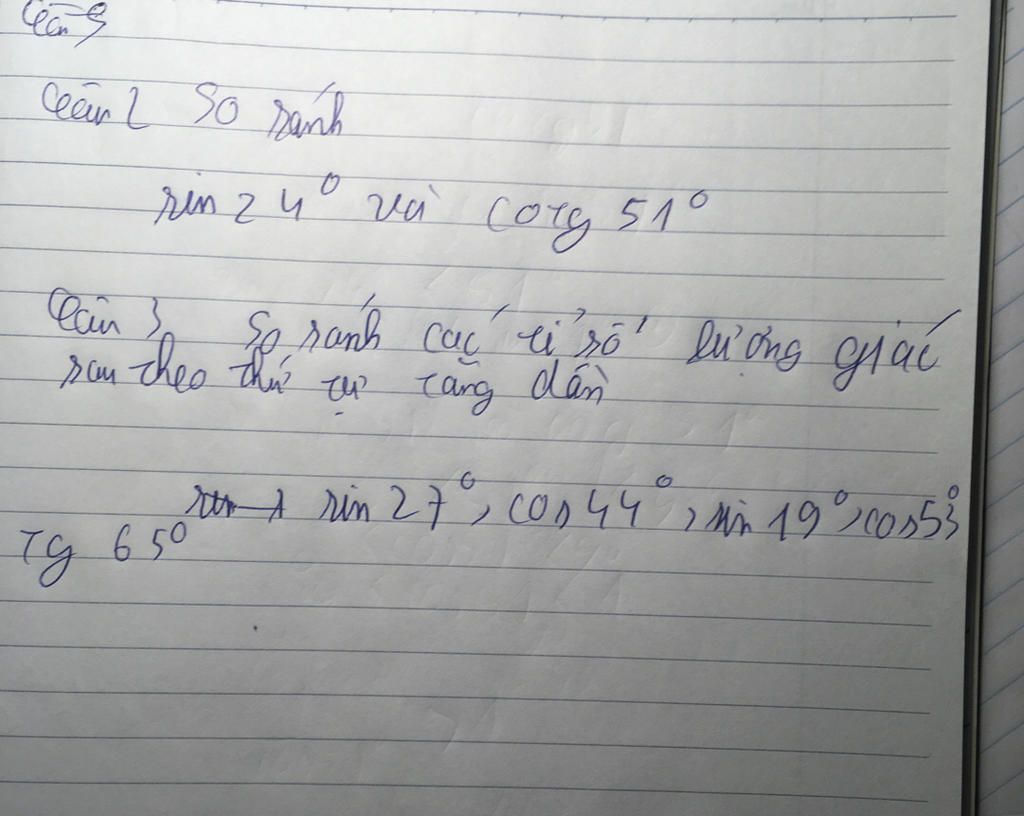 Câu 2 So sánh
sin 24° và cotg 51°
Câu 3 So sánh các tỉ số lượng giác
sau theo thứ tự tăng dần
sin 27°, cos 44°, sin 19°, cos 53°
Tg 65°